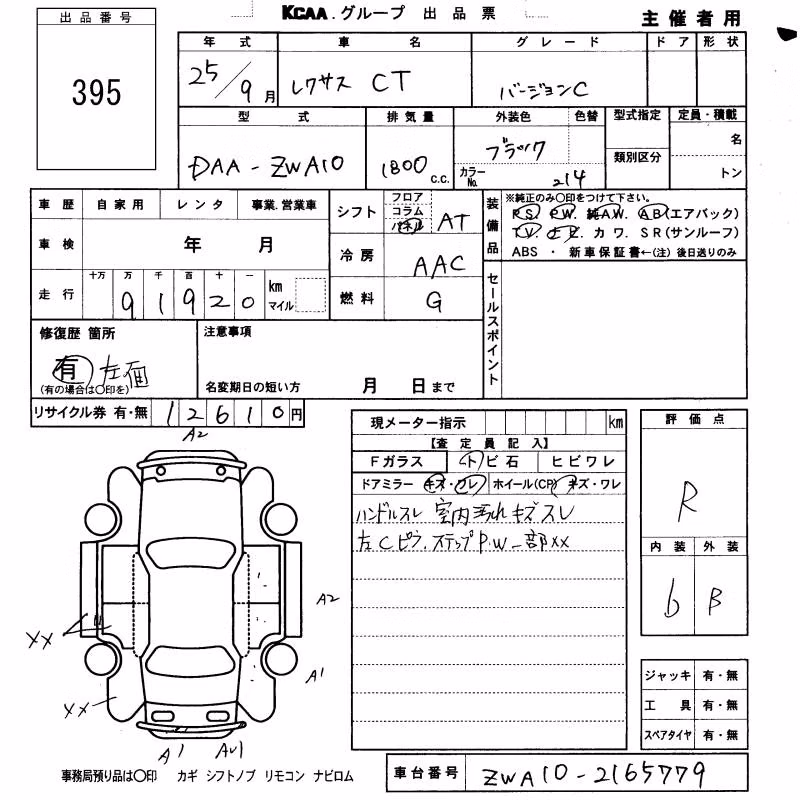 KCAA.グループ 出品票
主催者用
出品番号
395
年式 車名 グレード ドア 形状
25/9月 レクサス CT バージョンC
型式 排気量 外装色 色替 型式指定 定員・積載
DAA-ZWA10 1800c.c. ブラック
カラーNo. 214
類別区分
名
トン
車歴 自家用 レンタ 事業.営業車
シフト フロア コラム パネル AT
装備品
※純正のみ○印をつけて下さい。
P.S. P.W. 純A.W. A.B(エアバック)
T.V. ナビ. カワ. S.R(サンルーフ)
ABS ・ 新車保証書←(注)後日送りのみ
車検 年 月
冷房 AAC
走行 十万 万 千 百 十 一
9 1 9 2 0 km マイル
燃料 G
セールスポイント
修復歴 箇所
有 左面
(有の場合は○印を)
注意事項
名変期日の短い方 月 日まで
リサイクル券 有・無 12610円
現メーター指示 km
【査定員記入】
Fガラス トビ石 ヒビワレ
ドアミラー キズ・ワレ ホイール(CP) キズ・ワレ
ハンドルスレ 室内汚れキズスレ
左Cピラ.ステップP.W一部XX
評価点
R
内装 外装
b B
A2
A2
XX
A1
XX
A1
ジャッキ 有・無
工具 有・無
スペアタイヤ 有・無
事務局預り品は○印 カギ シフトノブ リモコン ナビロム
車台番号 ZWA10-2165779